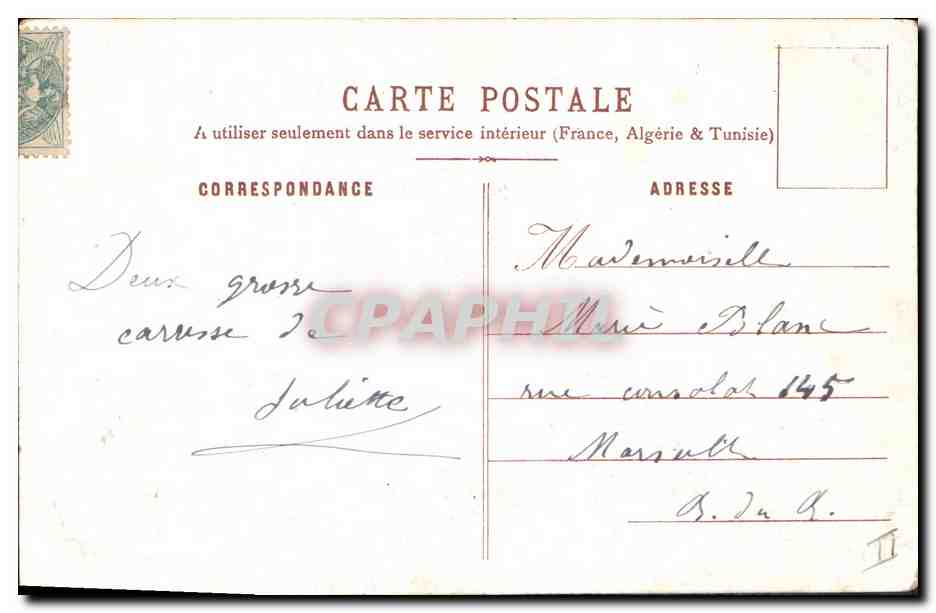 CARTE POSTALE
A utiliser seulement dans le service intérieur (France, Algérie & Tunisie)
CORRESPONDANCE
Deux grosse
carresse de
Juliette
ADRESSE
Mademoiselle
Marie Blanc
rue consolat 145
Marseille
B. du R.
II
CPAPHIL